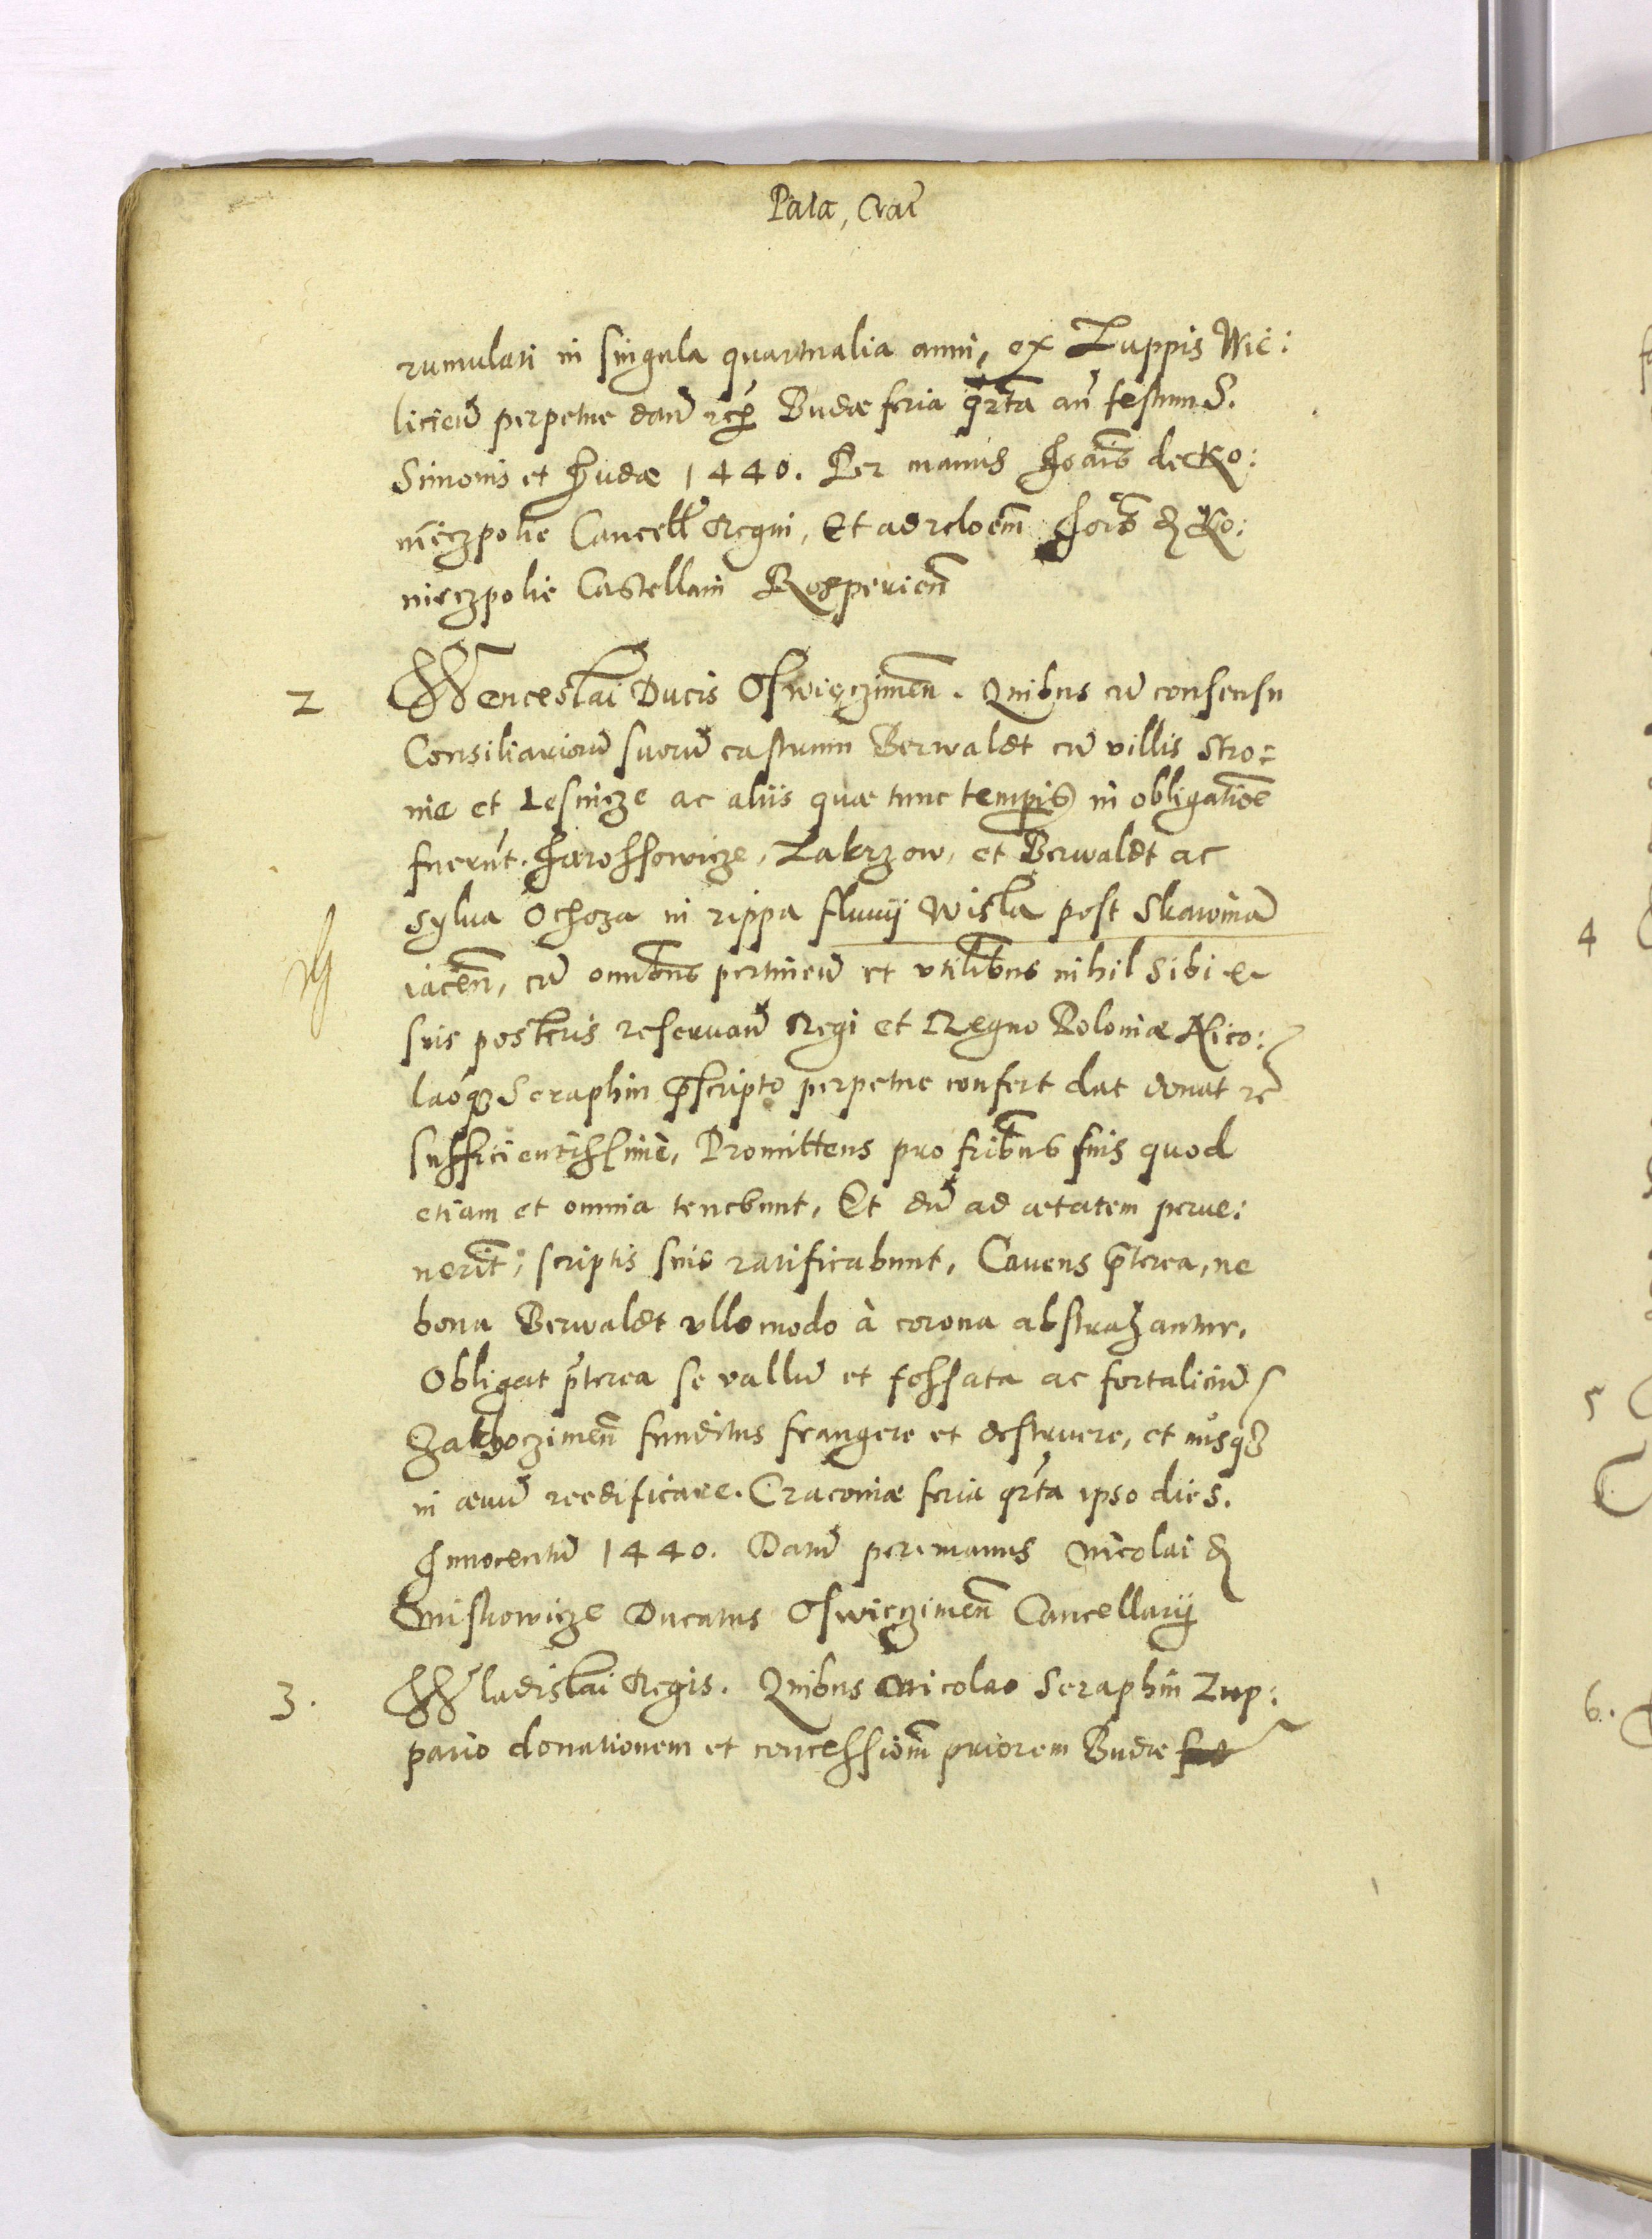 Pala, Crac̄
rumulari in singula quartualia anni, ex Zuppis Wie:
licień perpetue dań Budæ feria q̄rta añ festum S.
Simonis et Judæ 1440. Per manus Joañis de Ko:
niēczpolie Cancell̄ Regni, Et ad reloēm Joīs de Ko:
nieczpolie Castellani Rosperień
2 Wenceslai Ducis Oswięczimeñ. Quibus cū consensu
Consiliariorū suorū castrum Berwaldt cū villis Stro=
nie et Lesnicze ac aliis quæ tunc temp̄is in obligatiōe
fuerūt. Jarossowicze, Zakrzow, et Berwaldt ac
sylua Ochoza in rippa fluuij Wisla post Skawinā
iaceñ, cū omībus pertineñ et vtilībus nihil sibi &
suis posteris reseruań Regi et Regno Poloniæ Nico:
laoq3 Seraphin p̄scripto perpetue confert dat donat
sufficientissime, Promittens pro fribus suis quod
etiam et omnia tenebunt, Et dū ad ætatem perue:
nerīt, scriptis suis ratificabunt, Cauens p̄terea, ne
bona Berwaldt vllo modo à corona abstrahantur.
Obligat p̄terea se vallū et fossata ac fortaliciū
funditus frangere et destruere, et nusq3
in æuū reedificare. Cracouiæ feria q̄rta ipso die S.
Innocentū 1440. Datū per manus Nicolai de
Ducatus Oswięczimeñ Cancellarij
3. Wladislai Regis. Quibus Nicolao Seraphin Zup:
pario donationem et concessioēm priorem Budæ
4
5
6.